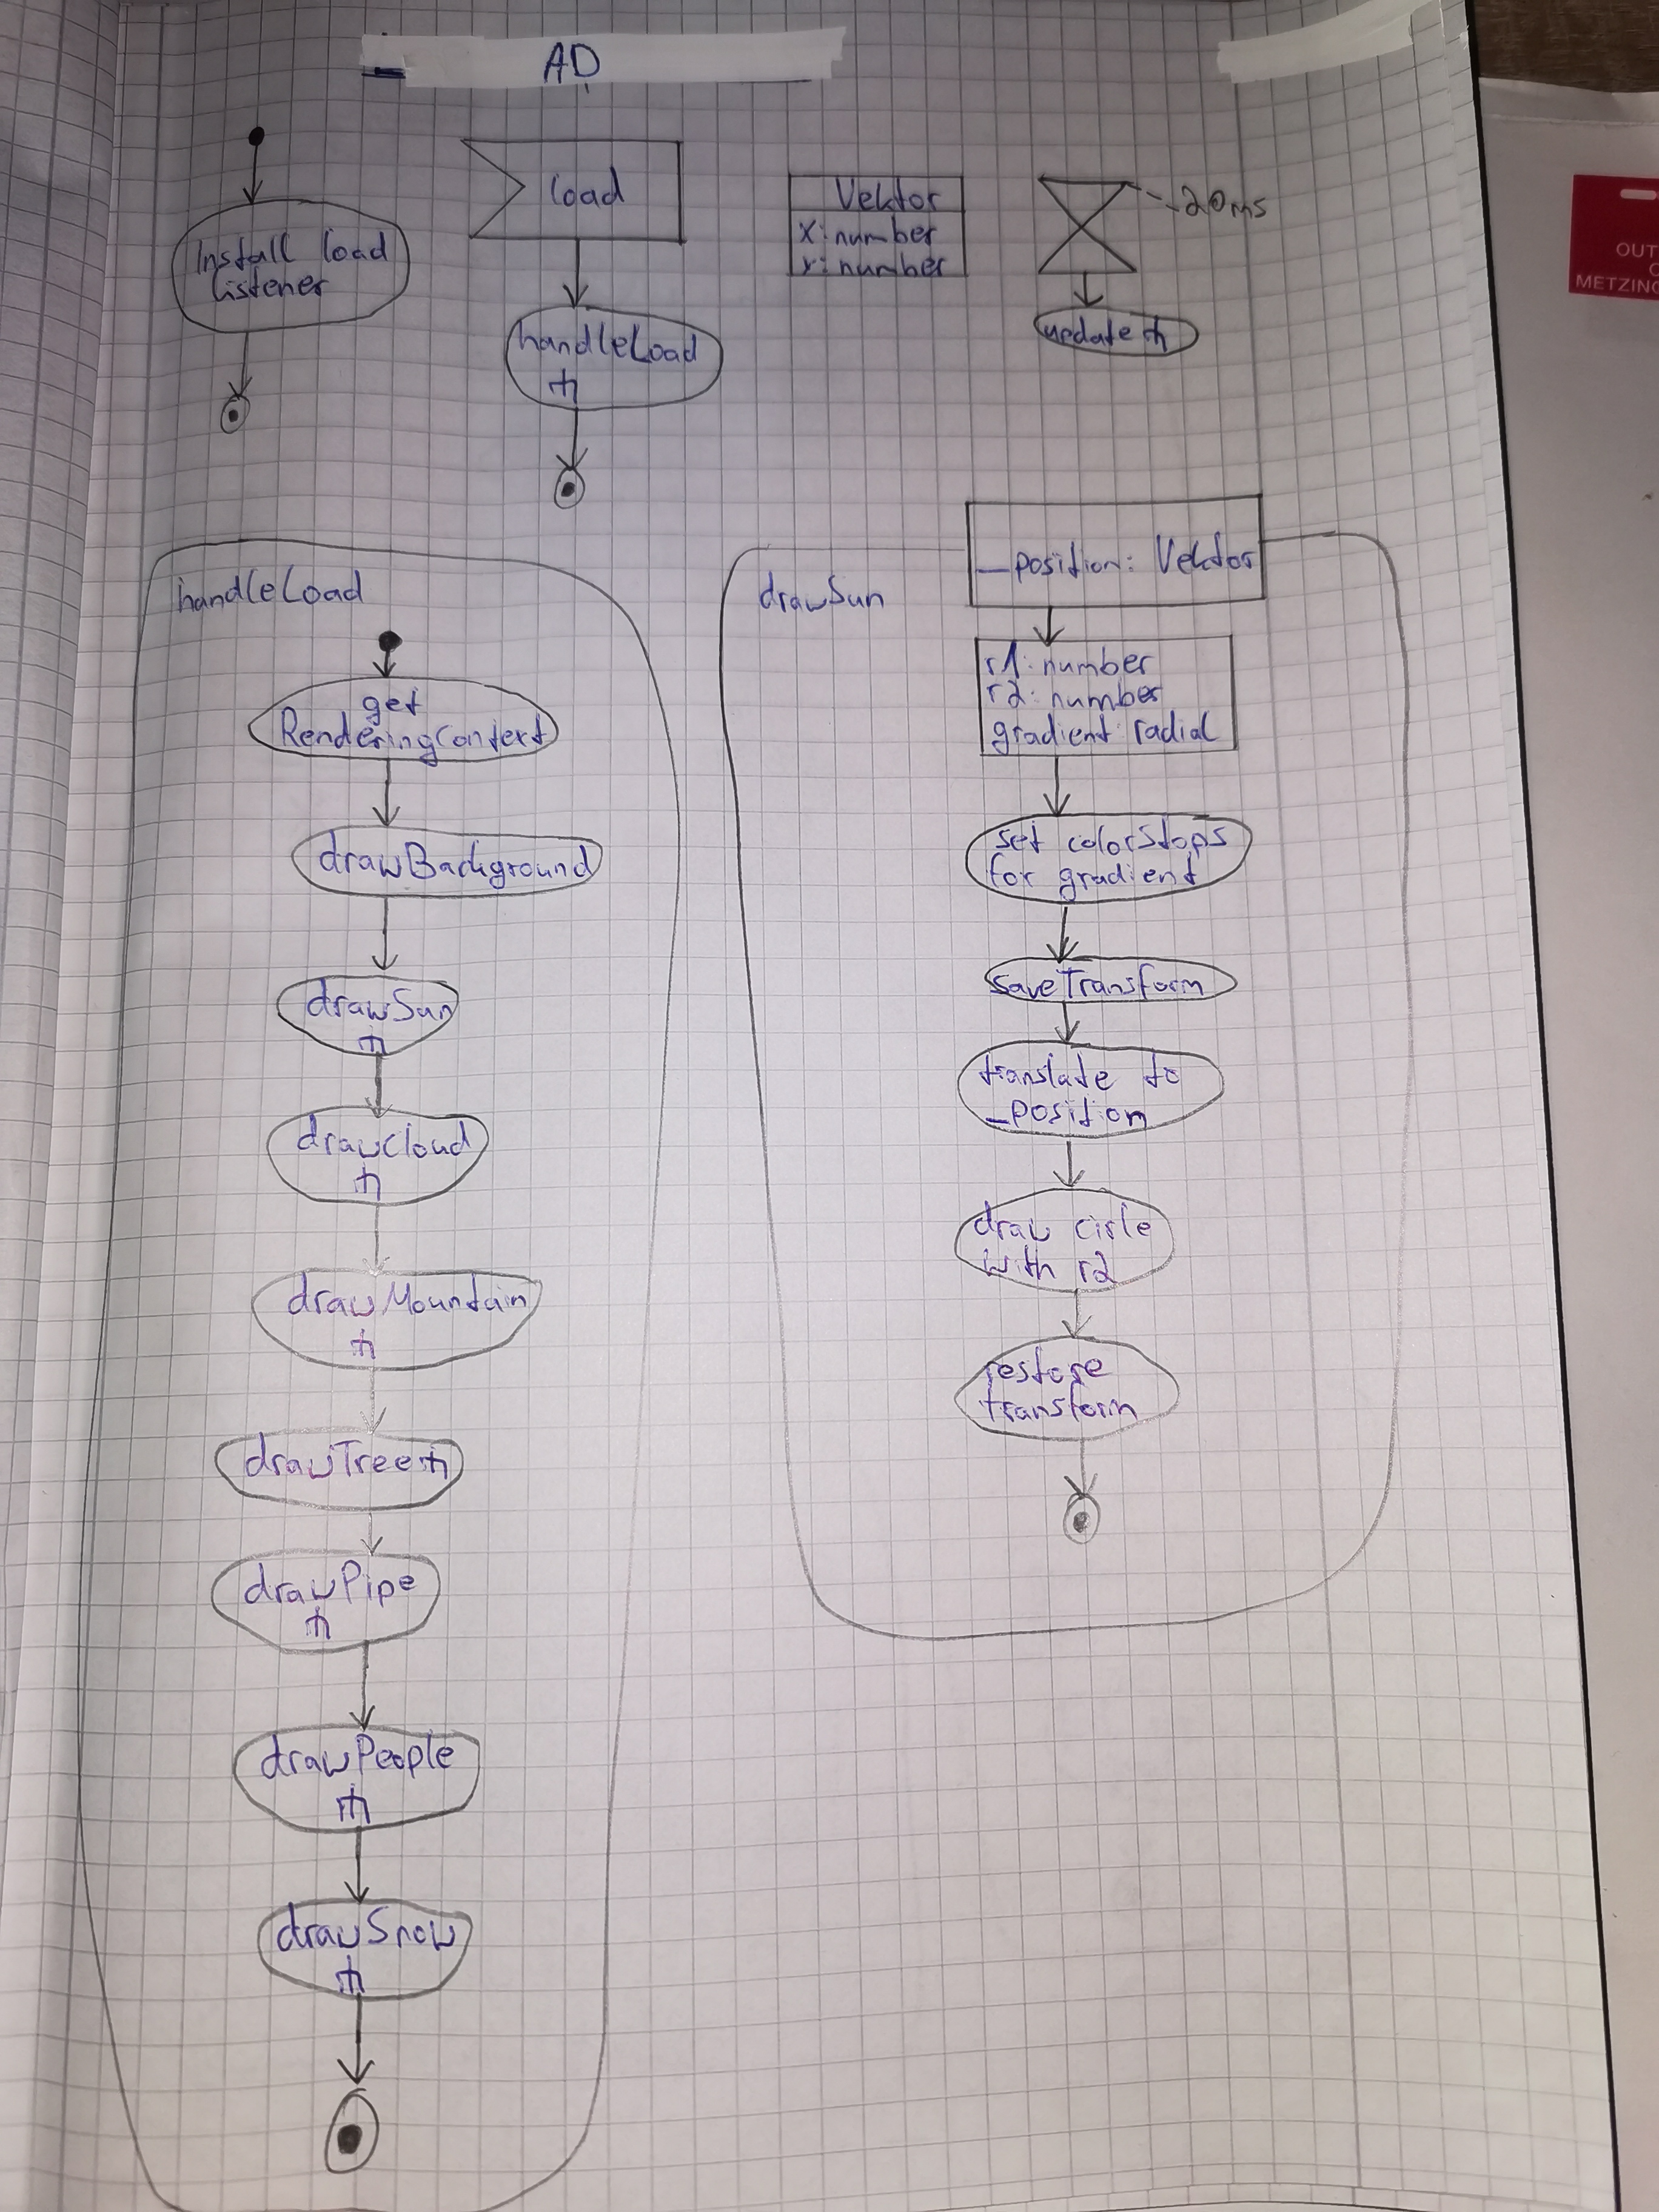 AD
Install load
listener
load
handleLoad
Vektor
x: number
y: number
20ms
update
handleLoad
get
RenderingContext
drawBackground
drawSun
drawCloud
drawMountain
drawTree
drawPipe
drawPeople
drawSnow
drawSun
_position: Vektor
r1: number
r2: number
gradient radial
set colorStops
for gradient
saveTransform
translate to
_position
draw cirle
with r2
restore
transform
OUT
METZING